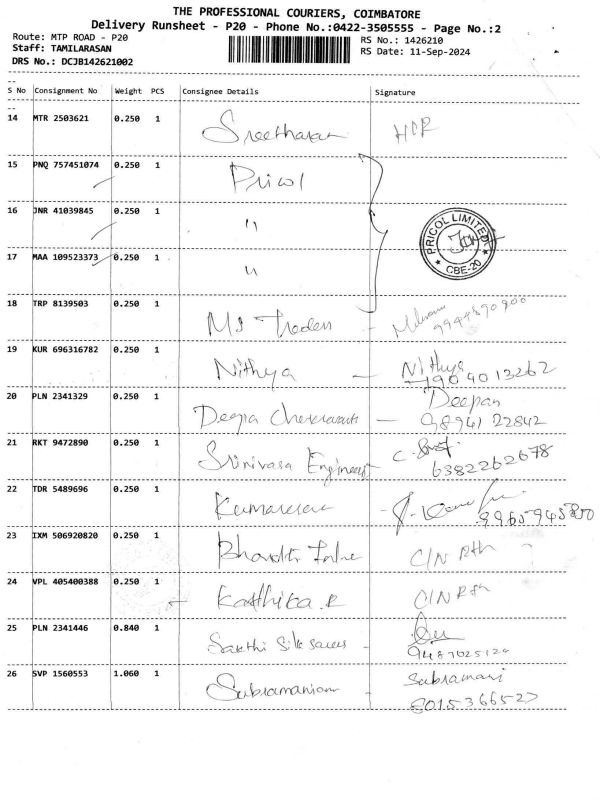 THE PROFESSIONAL COURIERS, COIMBATORE
Delivery Runsheet - P20 - Phone No.:0422-3505555 - Page No.:2
Route: MTP ROAD - P20
Staff: TAMILARASAN
DRS No.: DCJB142621002
RS No.: 1426210
RS Date: 11-Sep-2024
S No Consignment No Weight PCS Consignee Details Signature
14 MTR 2503621 0.250 1 Sreetharan
15 PNQ 757451074 0.250 1 Pricol
16 JNR 41039845 0.250 1 "
PRICOL LIMITED CBE-20
17 MAA 109523373 0.250 1 "
18 TRP 8139503 0.250 1 Ms Traders -
19 KUR 696316782 0.250 1 Nithya - Nithya
7904013262
20 PLN 2341329 0.250 1 Deepa - Deepan
98941 22842
21 RKT 9472890 0.250 1 Srinivasa Engineers C.
6382262678
22 TDR 5489696 0.250 1 Kumaresan
23 IXM 506920820 0.250 1 C/N Rth
24 VPL 405400388 0.250 1 Karthika.R C/N Rth
25 PLN 2341446 0.840 1 Sakthi Silk sarees -
9487025124
26 SVP 1560553 1.060 1 Subramaniam - Subramani
8015366527